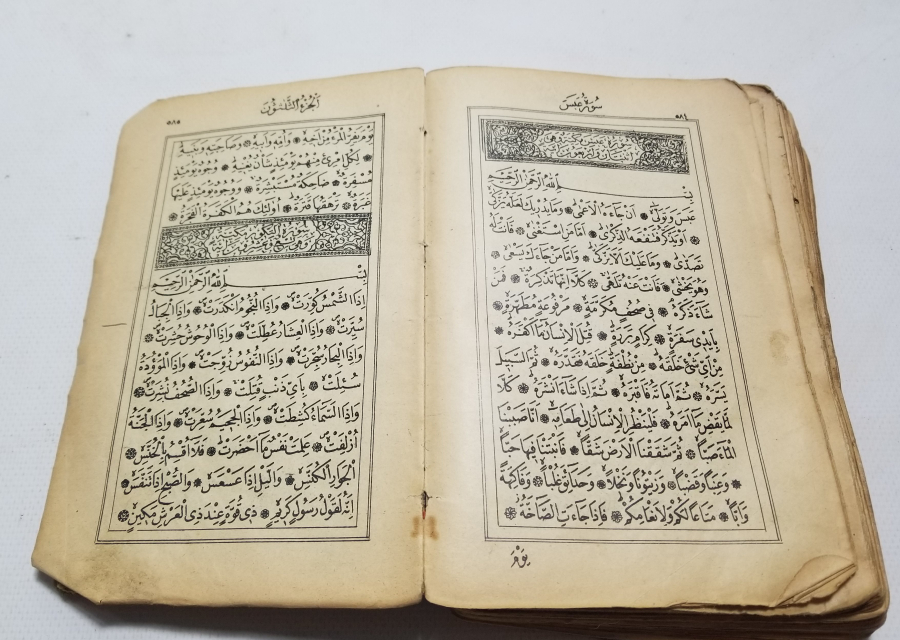 سُورَةُ عَبَسَ
بِسْمِ اللّٰهِ الرَّحْمٰنِ الرَّحِيمِ
عَبَسَ وَتَوَلّٰى ❁ اَنْ جَاءَهُ الْاَعْمٰى ❁ وَمَا يُدْرِيكَ لَعَلَّهُ يَزَّكّٰى
❁ اَوْ يَذَّكَّرُ فَتَنْفَعَهُ الذِّكْرٰى ❁ اَمَّا مَنِ اسْتَغْنٰى ❁ فَاَنْتَ لَهُ
تَصَدّٰى ❁ وَمَا عَلَيْكَ اَلَّا يَزَّكّٰى ❁ وَاَمَّا مَنْ جَاءَكَ يَسْعٰى ❁
وَهُوَ يَخْشٰى ❁ فَاَنْتَ عَنْهُ تَلَهّٰى ❁ كَلَّا اِنَّهَا تَذْكِرَةٌ ❁ فَمَنْ
شَاءَ ذَكَرَهُ ❁ فِى صُحُفٍ مُكَرَّمَةٍ ❁ مَرْفُوعَةٍ مُطَهَّرَةٍ ❁
بِاَيْدِى سَفَرَةٍ ❁ كِرَامٍ بَرَرَةٍ ❁ قُتِلَ الْاِنْسَانُ مَا اَكْفَرَهُ ❁
مِنْ اَىِّ شَىْءٍ خَلَقَهُ ❁ مِنْ نُطْفَةٍ خَلَقَهُ فَقَدَّرَهُ ❁ ثُمَّ السَّبِيلَ
يَسَّرَهُ ❁ ثُمَّ اَمَاتَهُ فَاَقْبَرَهُ ❁ ثُمَّ اِذَا شَاءَ اَنْشَرَهُ ❁ كَلَّا
لَمَّا يَقْضِ مَا اَمَرَهُ ❁ فَلْيَنْظُرِ الْاِنْسَانُ اِلٰى طَعَامِهِ ❁ اَنَّا صَبَبْنَا
الْمَاءَ صَبًّا ❁ ثُمَّ شَقَقْنَا الْاَرْضَ شَقًّا ❁ فَاَنْبَتْنَا فِيهَا حَبًّا
❁ وَعِنَبًا وَقَضْبًا ❁ وَزَيْتُونًا وَنَخْلًا ❁ وَحَدَائِقَ غُلْبًا ❁ وَفَاكِهَةً
وَاَبًّا ❁ مَتَاعًا لَكُمْ وَلِاَنْعَامِكُمْ ❁ فَاِذَا جَاءَتِ الصَّاخَّةُ ❁
يَوْمَ
اَلْجُزْءُ الثَّلٰثُونَ
٥٨٥
يَوْمَ يَفِرُّ الْمَرْءُ مِنْ اَخِيهِ ❁ وَاُمِّهِ وَاَبِيهِ ❁ وَصَاحِبَتِهِ وَبَنِيهِ
❁ لِكُلِّ امْرِئٍ مِنْهُمْ يَوْمَئِذٍ شَأْنٌ يُغْنِيهِ ❁ وُجُوهٌ يَوْمَئِذٍ
مُسْفِرَةٌ ❁ ضَاحِكَةٌ مُسْتَبْشِرَةٌ ❁ وَوُجُوهٌ يَوْمَئِذٍ عَلَيْهَا
غَبَرَةٌ ❁ تَرْهَقُهَا قَتَرَةٌ ❁ اُولٰئِكَ هُمُ الْكَفَرَةُ الْفَجَرَةُ ❁
بِسْمِ اللّٰهِ الرَّحْمٰنِ الرَّحِيمِ
اِذَا الشَّمْسُ كُوِّرَتْ ❁ وَاِذَا النُّجُومُ انْكَدَرَتْ ❁ وَاِذَا الْجِبَالُ
سُيِّرَتْ ❁ وَاِذَا الْعِشَارُ عُطِّلَتْ ❁ وَاِذَا الْوُحُوشُ حُشِرَتْ ❁
وَاِذَا الْبِحَارُ سُجِّرَتْ ❁ وَاِذَا النُّفُوسُ زُوِّجَتْ ❁ وَاِذَا الْمَوْؤُدَةُ
سُئِلَتْ ❁ بِاَىِّ ذَنْبٍ قُتِلَتْ ❁ وَاِذَا الصُّحُفُ نُشِرَتْ ❁
وَاِذَا السَّمَاءُ كُشِطَتْ ❁ وَاِذَا الْجَحِيمُ سُعِّرَتْ ❁ وَاِذَا الْجَنَّةُ
اُزْلِفَتْ ❁ عَلِمَتْ نَفْسٌ مَا اَحْضَرَتْ ❁ فَلَا اُقْسِمُ بِالْخُنَّسِ ❁
الْجَوَارِ الْكُنَّسِ ❁ وَالَّيْلِ اِذَا عَسْعَسَ ❁ وَالصُّبْحِ اِذَا تَنَفَّسَ ❁
اِنَّهُ لَقَوْلُ رَسُولٍ كَرِيمٍ ❁ ذِى قُوَّةٍ عِنْدَ ذِى الْعَرْشِ مَكِينٍ ❁